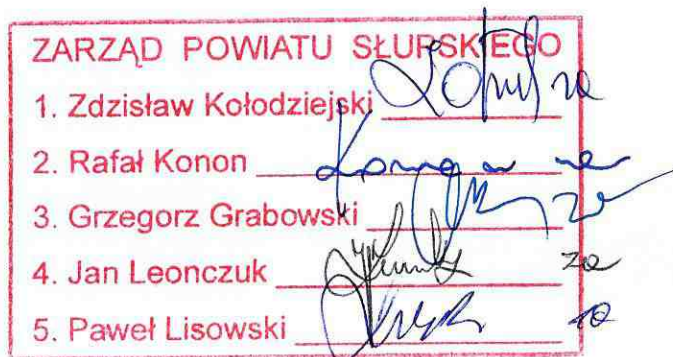 ZARZĄD POWIATU SŁUPSKIEGO
1. Zdzisław Kołodziejski
2. Rafał Konon
3. Grzegorz Grabowski
4. Jan Leonczuk za
5. Paweł Lisowski